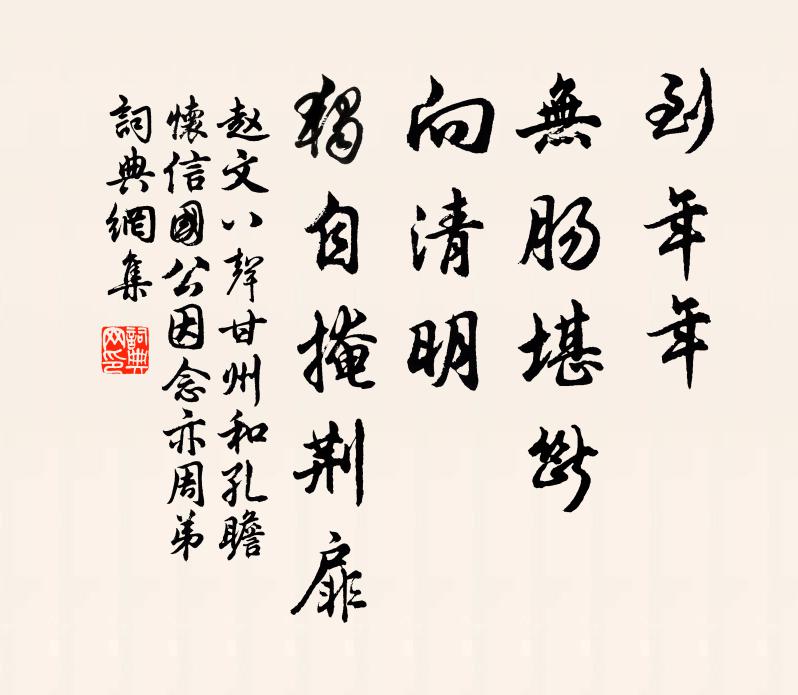 到年年
無腸堪斷
向清明
獨自掩荆扉
赵文八聲甘州和孔瞻
懷信國公因念亦周弟
詞典網集
詞典
网印